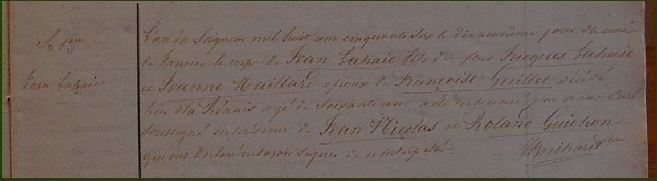 Jean Lahaie
L'an du Seigneur mil huit cent cinquante six le dix neuvième jour du mois
de Janvier le corps de Jean Lahaie fils de feus Jacques Lahaie
et Jeanne Maillard époux de Françoise Guillot décédé
hier à la agé de Soixante ans a été inhumé par nous Curé
soussigné en présence de Jean Nicolas et Roland Guichon
qui ont déclaré ne savoir signer de ce interpellés.
Guihard